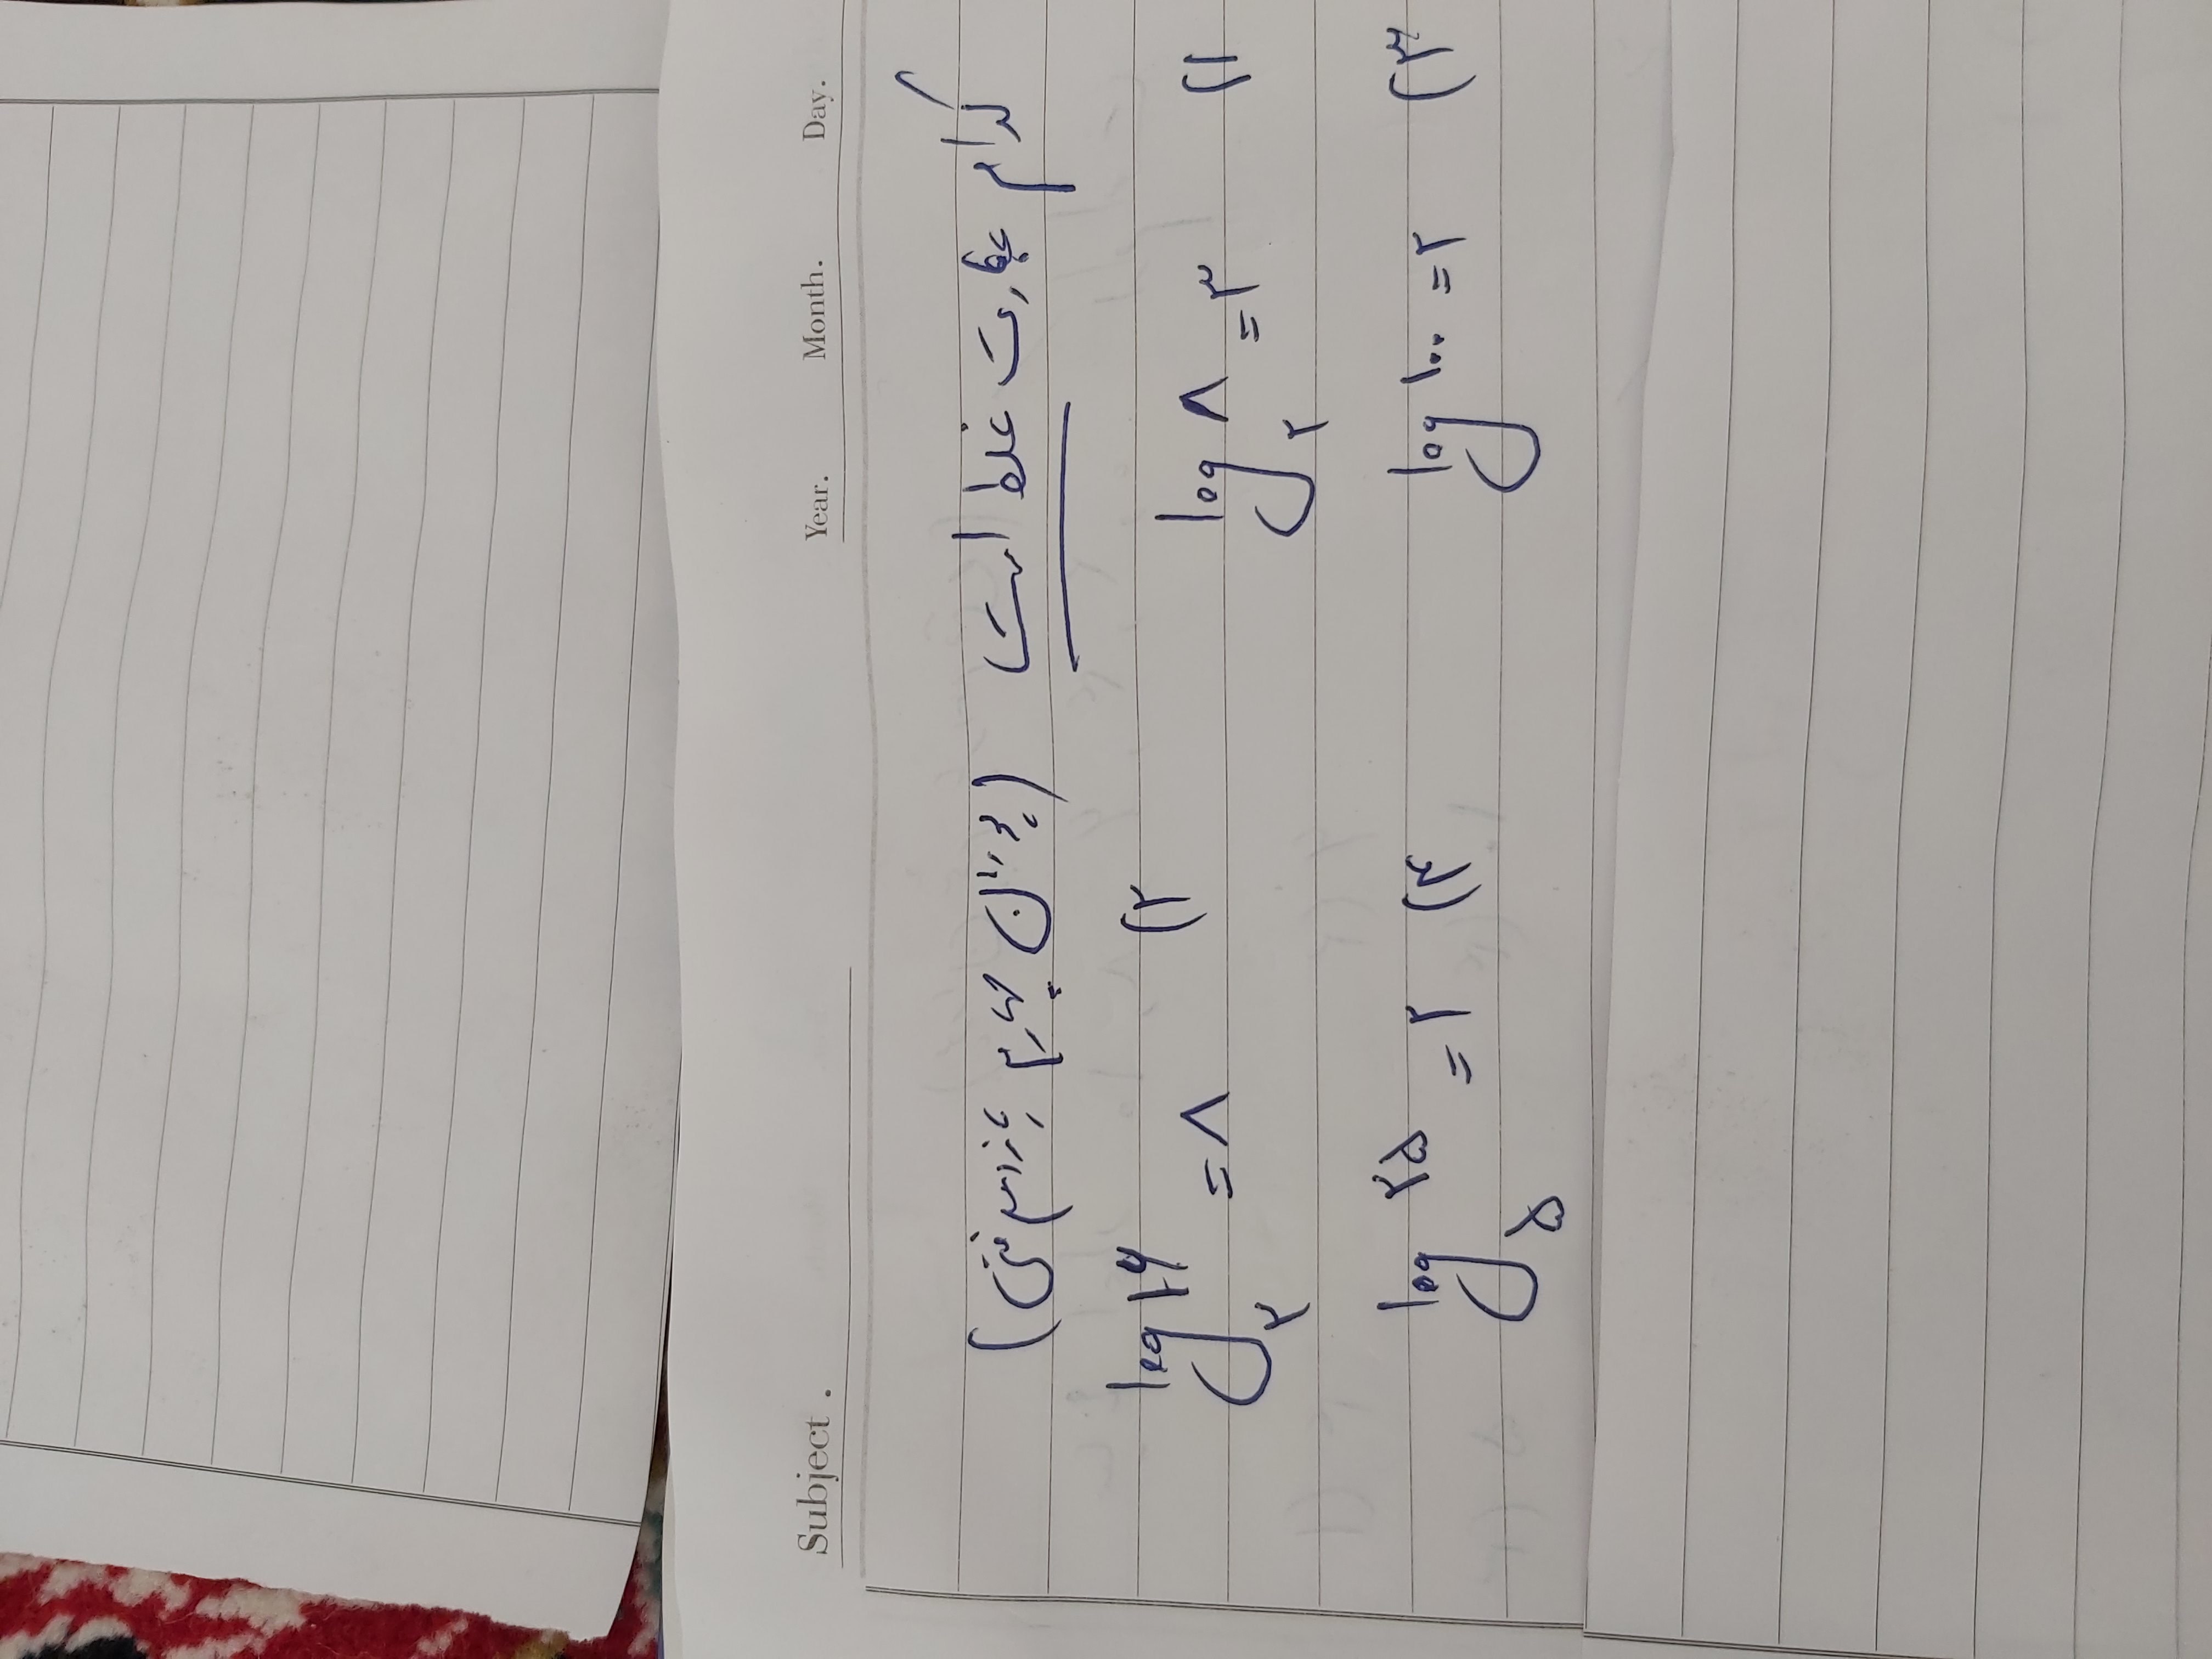 Subject . Year. Month. Day.
کدام عبارت غلط است (پودمان چهارم یازدهم فنی)
۱) log₂ ۸ = ۳ ۲) log₂ ۱۶ = ۸
۳) log ۱۰۰ = ۲ ۴) log₅ ۲۵ = ۲